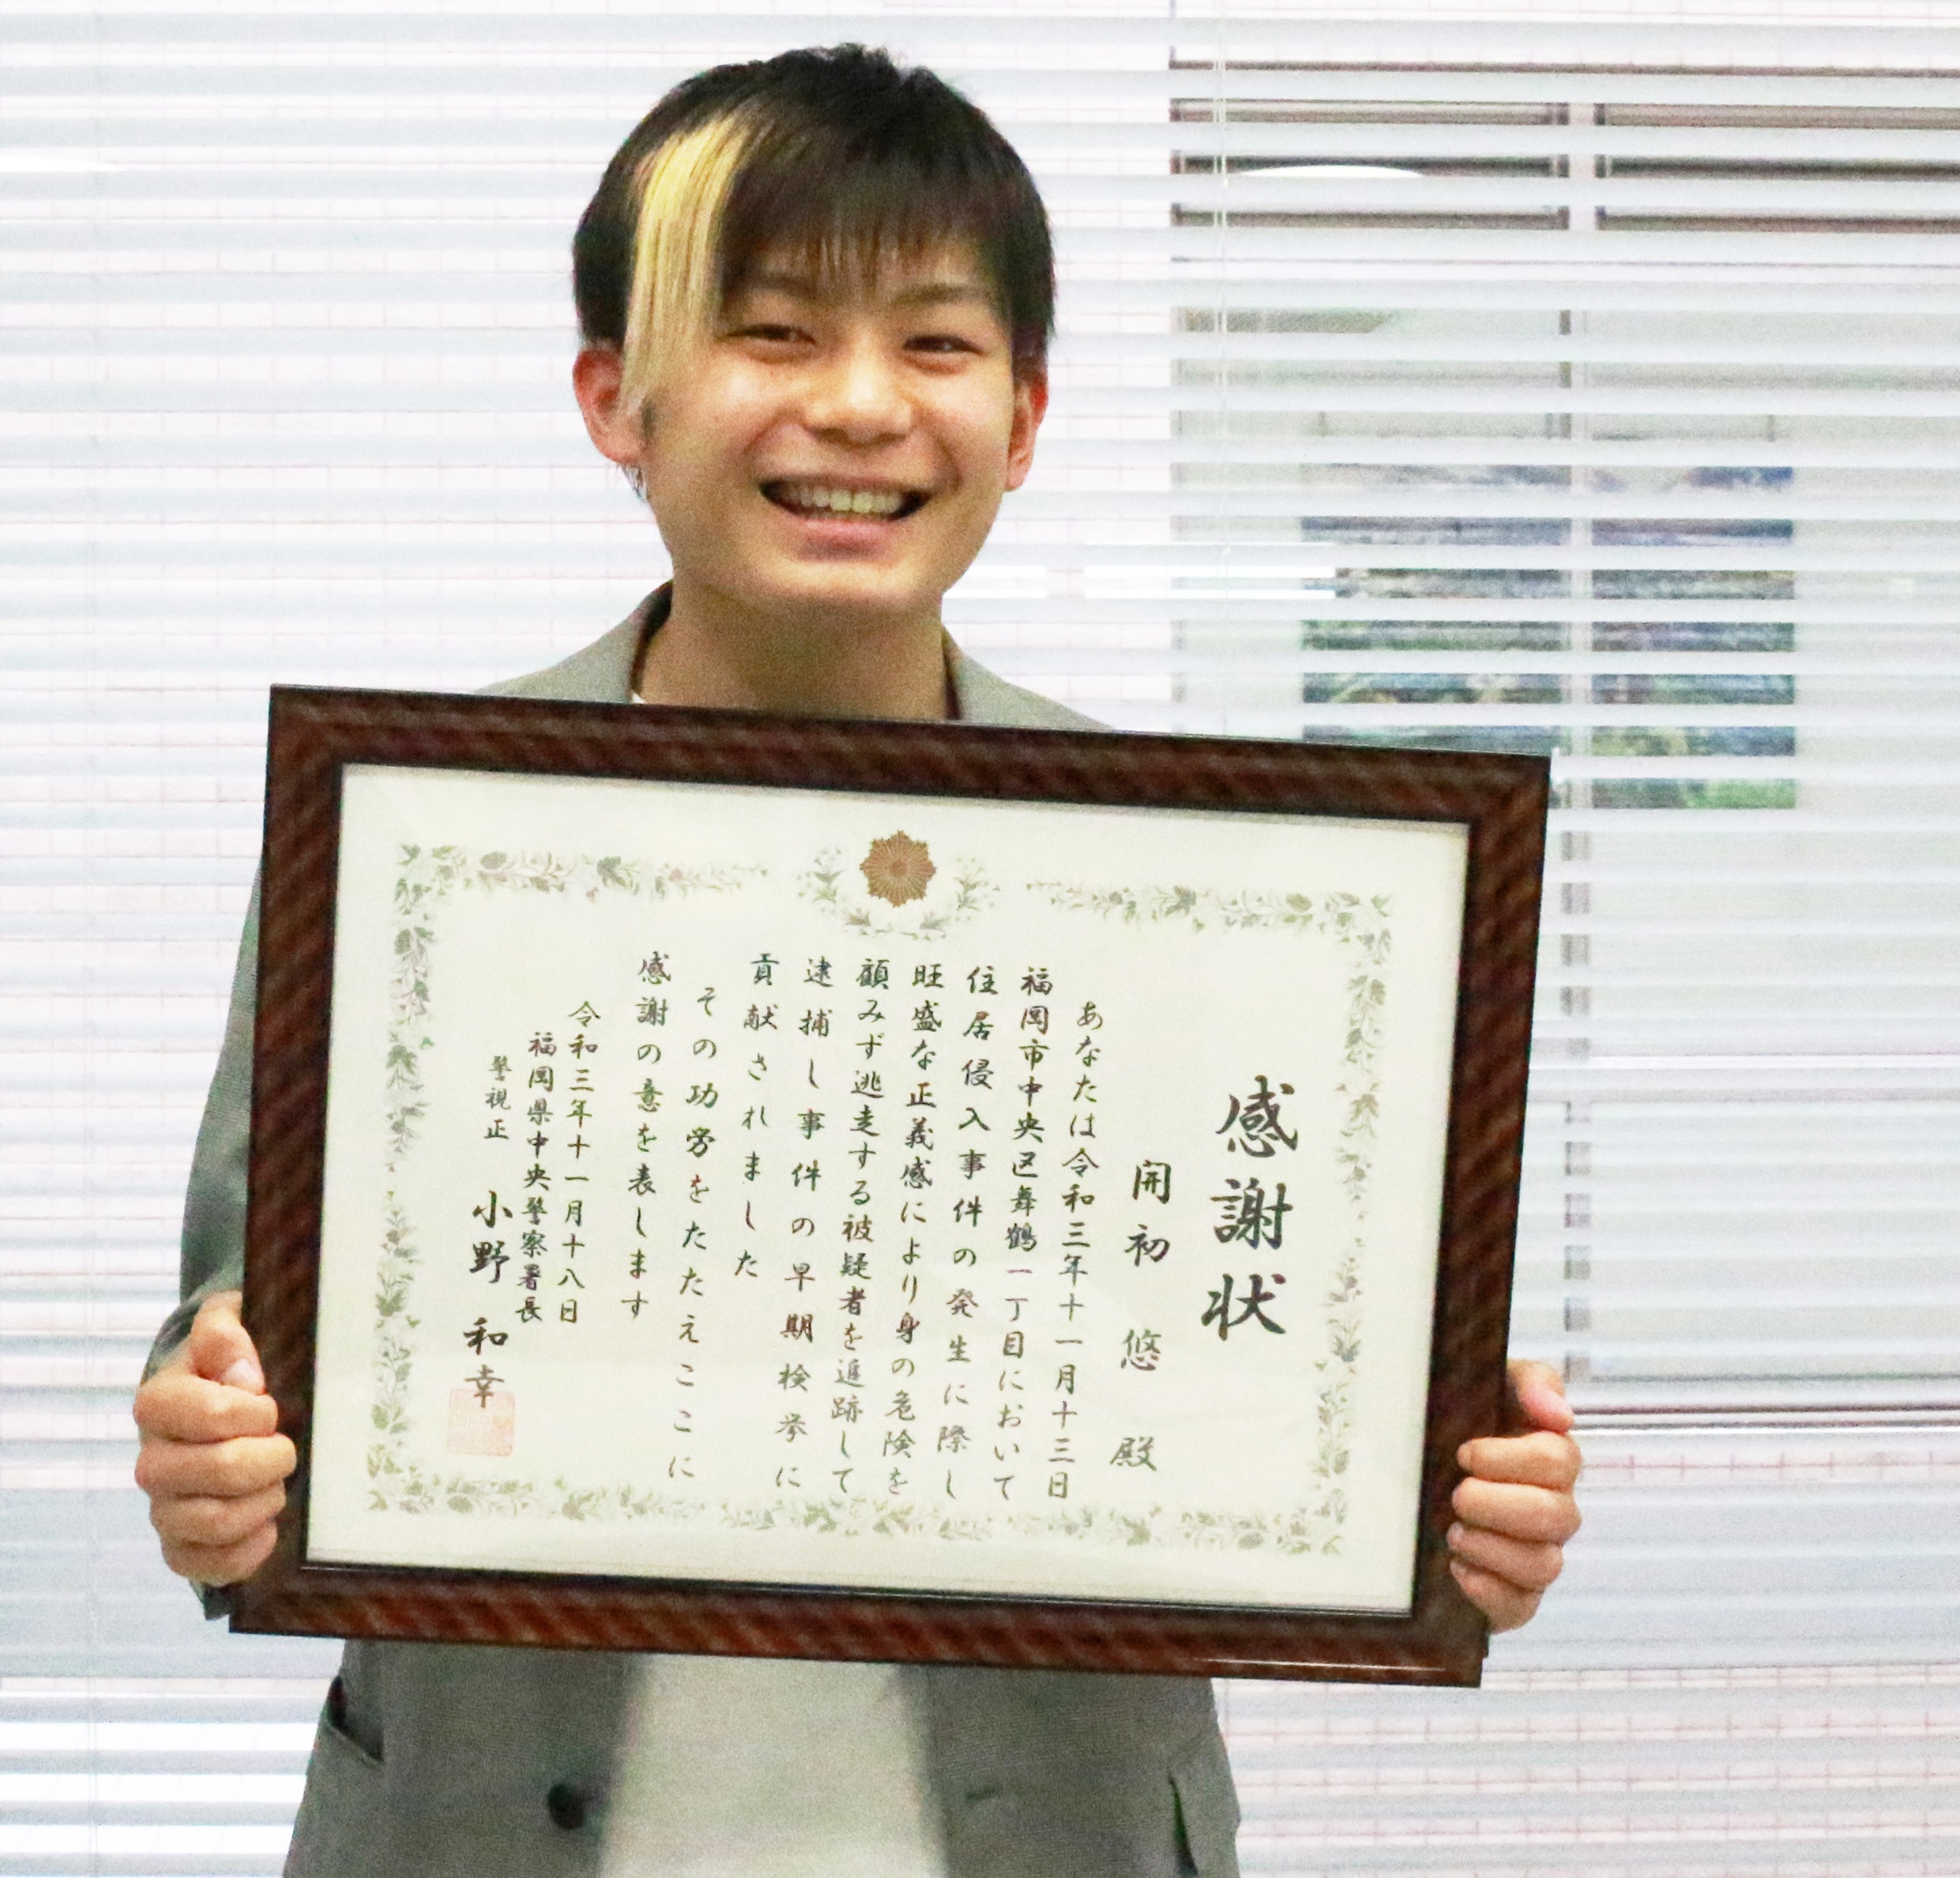 感謝状
開初 悠 殿
あなたは令和三年十一月十三日
福岡市中央区舞鶴一丁目において
住居侵入事件の発生に際し
旺盛な正義感により身の危険を
顧みず逃走する被疑者を追跡して
逮捕し事件の早期検挙に
貢献されました
その功労をたたえここに
感謝の意を表します
令和三年十一月十八日
福岡県中央警察署長
警視正 小野 和幸